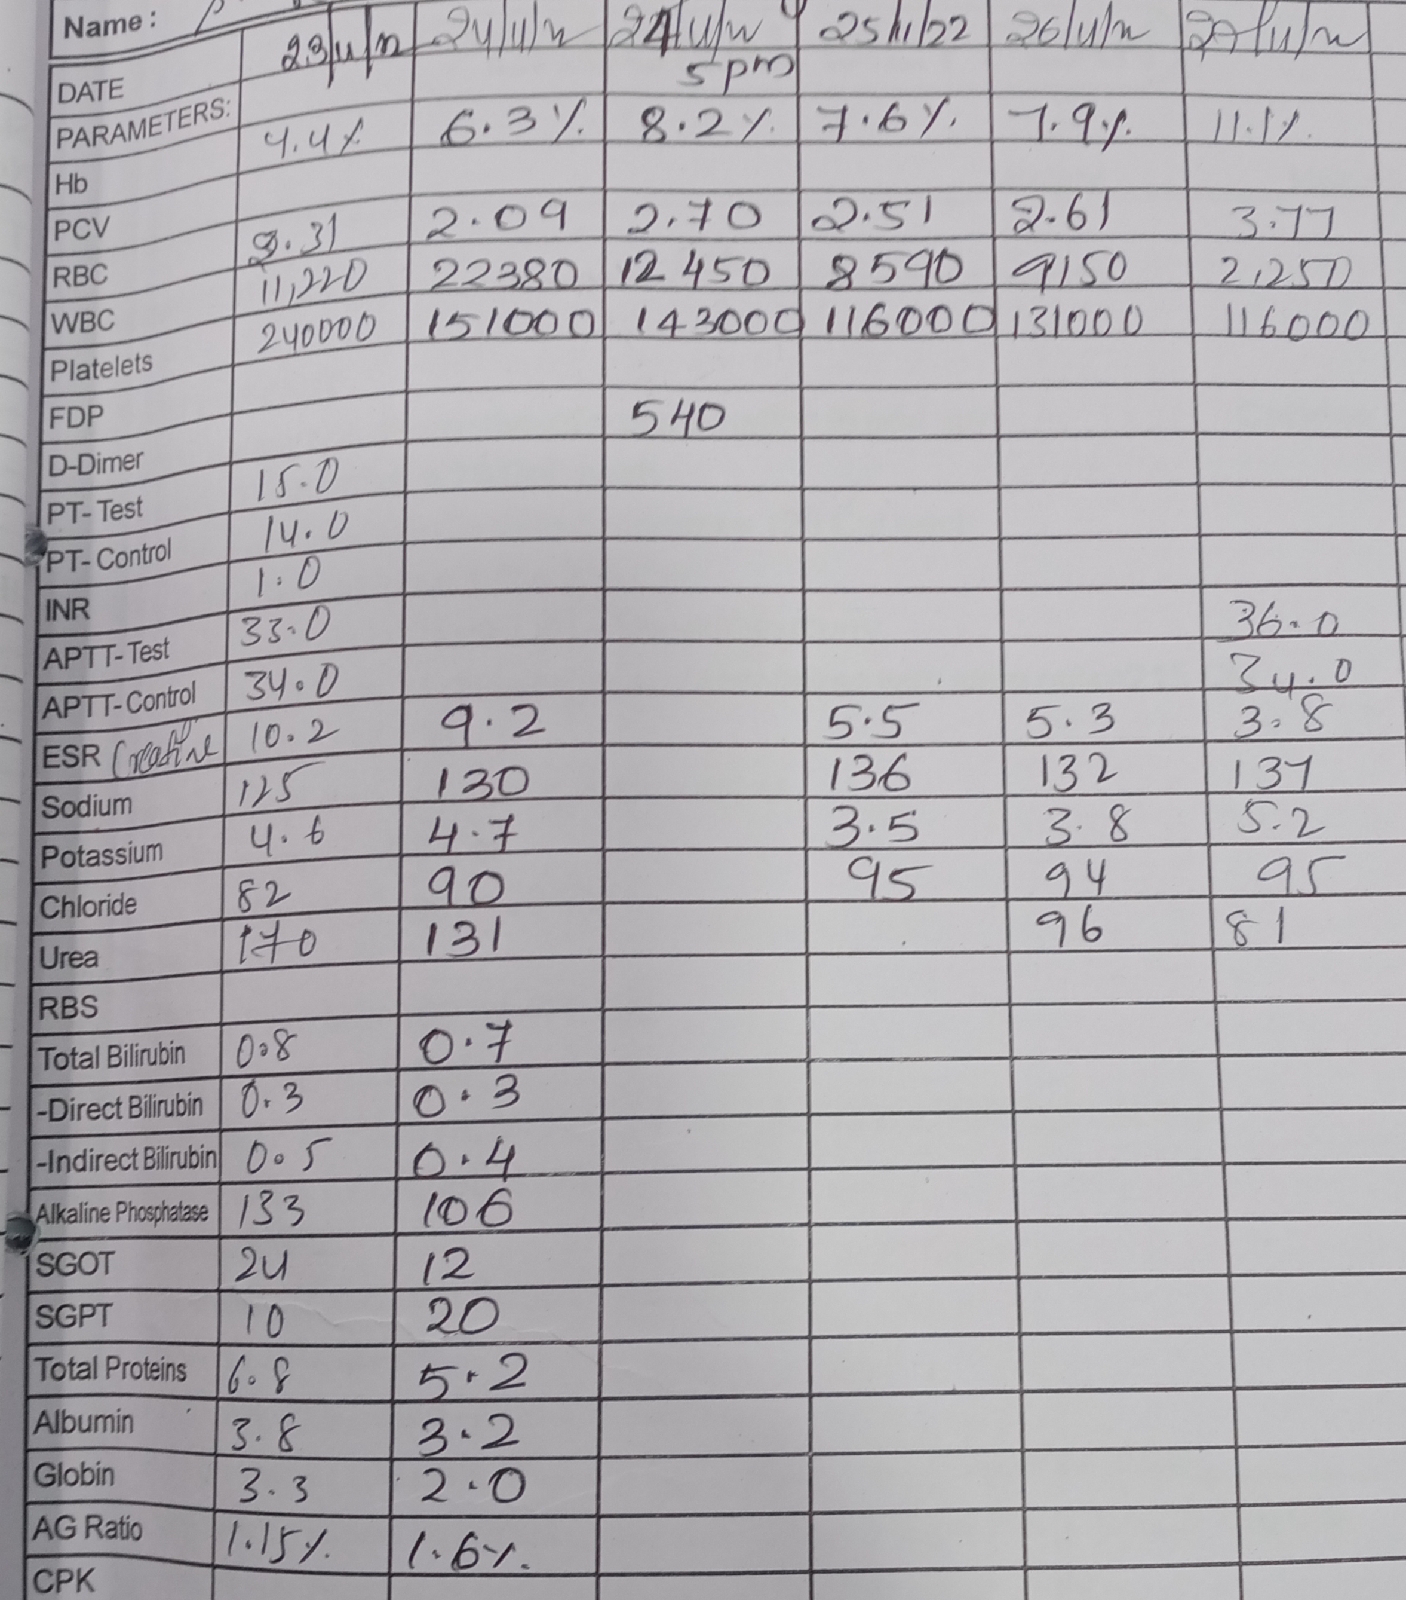 Name :
DATE 23/11/22 24/11/22 24/11/22 5pm 25/11/22 26/11/22 27/11/22
PARAMETERS:
Hb 4.4% 6.3% 8.2% 7.6% 7.9% 11.1%
PCV
RBC 2.09 2.70 2.51 2.61 3.77
WBC 11,220 22380 12450 8590 9150 2,250
Platelets 240000 151000 143000 116000 131000 116000
FDP
D-Dimer 540
PT- Test 15.0
PT- Control 14.0
INR 1.0
APTT- Test 33.0 36.0
APTT- Control 34.0 34.0
ESR Creatine 10.2 9.2 5.5 5.3 3.8
Sodium 125 130 136 132 137
Potassium 4.6 4.7 3.5 3.8 5.2
Chloride 82 90 95 94 95
Urea 170 131 96 81
RBS
Total Bilirubin 0.8 0.7
-Direct Bilirubin 0.3 0.3
-Indirect Bilirubin 0.5 0.4
Alkaline Phosphatase 133 106
SGOT 24 12
SGPT 10 20
Total Proteins 6.8 5.2
Albumin 3.8 3.2
Globin 3.3 2.0
AG Ratio 1.15% 1.6%
CPK